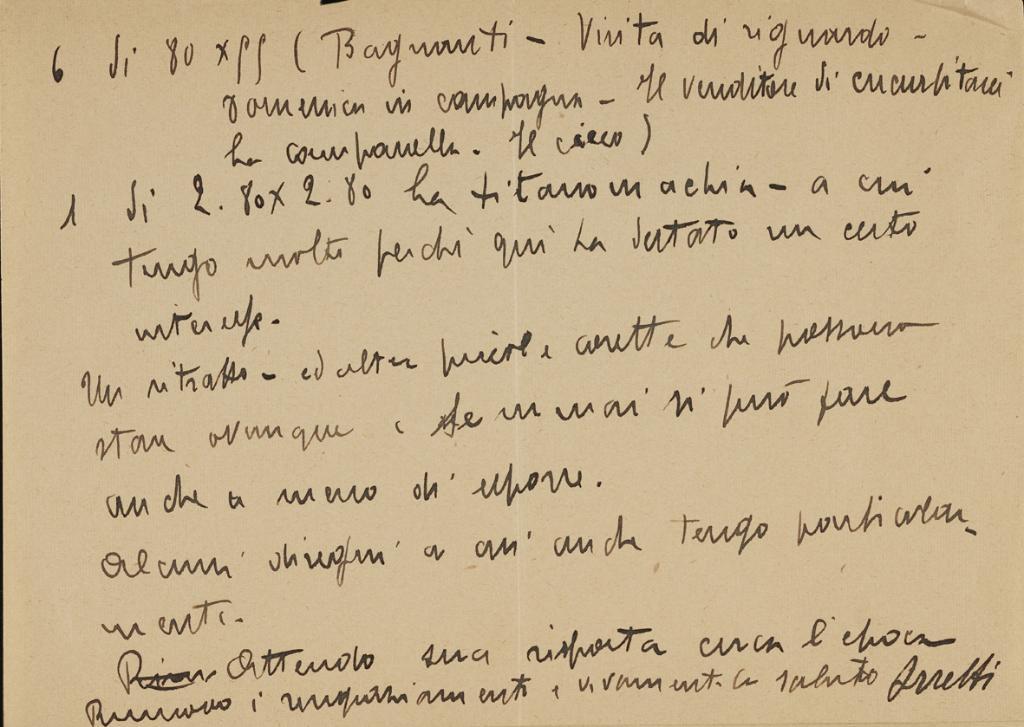 6 di 80 x 99 (Bagnanti - Visita di riguardo -
Domenica in campagna - Il venditore di cucurbitacei
La campanella. Il cieco)
1 di 2.80 x 2.80 La titanomachia - a cui
tengo molto perchè qui ha destato un certo
interesse.
Un ritratto - ed altre piccole cosette che possono
stare ovunque e semmai si può fare
anche a meno di esporre.
Alcuni disegni a cui anche tengo particolar-
mente.
Attendo sua risposta circa l'epoca
Rinnovo i ringraziamenti e vivamente la saluto